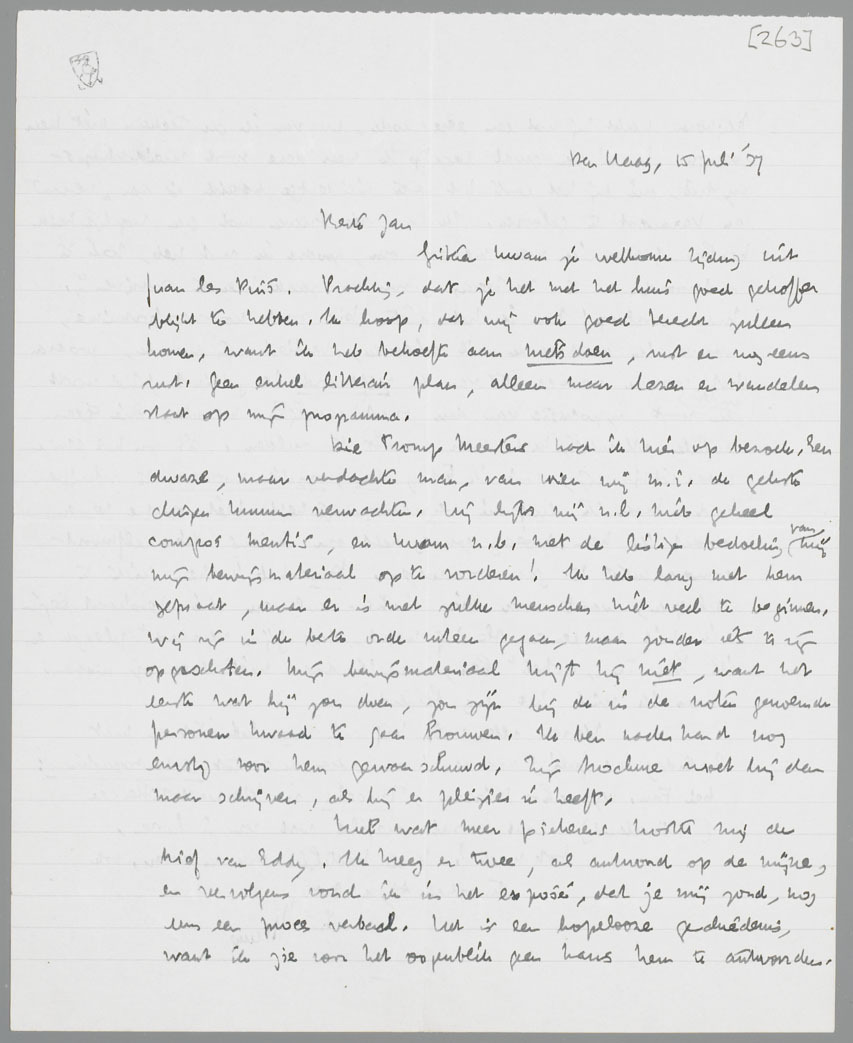 [263]
Den Haag, 15 Juli '37
Beste Jan
Gisteren kwam je welkome tijding uit
Juan les Pins. Prachtig, dat je het met het huis goed getroffen
blijkt te hebben. Ik hoop, dat wij ook goed terecht zullen
komen, want ik heb behoefte aan niets doen, rust en nog eens
rust. Geen enkel litterair plan, alleen maar lezen en wandelen
staat op mijn programma.
Die Tromp Meesters had ik hier op bezoek. Een
dwaze, maar verdachte man, van wien wij m.i. de gekste
dingen kunnen verwachten. Hij lijkt mij n.l. niet geheel
compos mentis, en kwam n.b. met de listige bedoeling van mij
mijn bewijsmateriaal op te vorderen! Ik heb lang met hem
gepraat, maar er is met zulke menschen niet veel te beginnen.
Wij zijn in de beste orde uiteen gegaan, maar zonder iets te zijn
opgeschoten. Mijn bewijsmateriaal krijgt hij niet, want het
eerste wat hij zou doen, zou zijn bij de in de noten genoemde
personen kwaad te gaan brouwen. Ik ben naderhand nog
ernstig voor hem gewaarschuwd. Zijn brochure moet hij dan
maar schrijven, als hij er pleizier in heeft.
Iets wat meer piekerens kostte mij de
brief van Eddy. Ik kreeg er twee, als antwoord op de mijne,
en vervolgens vond ik in het exposé, dat je mij zond, nog
eens een proces verbaal. Het is een hopelooze geschiedenis,
want ik zie voor het oogenblik geen kans hem te antwoorden.